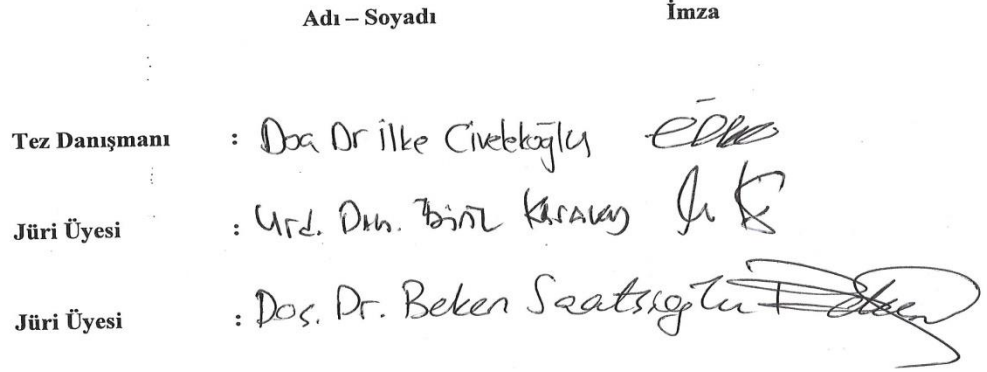 Adı – Soyadı İmza
Tez Danışmanı : Doç Dr İlke Civelekoğlu
Jüri Üyesi : Yrd. Doç.
Jüri Üyesi : Doç. Dr. Beken Saatçioğlu